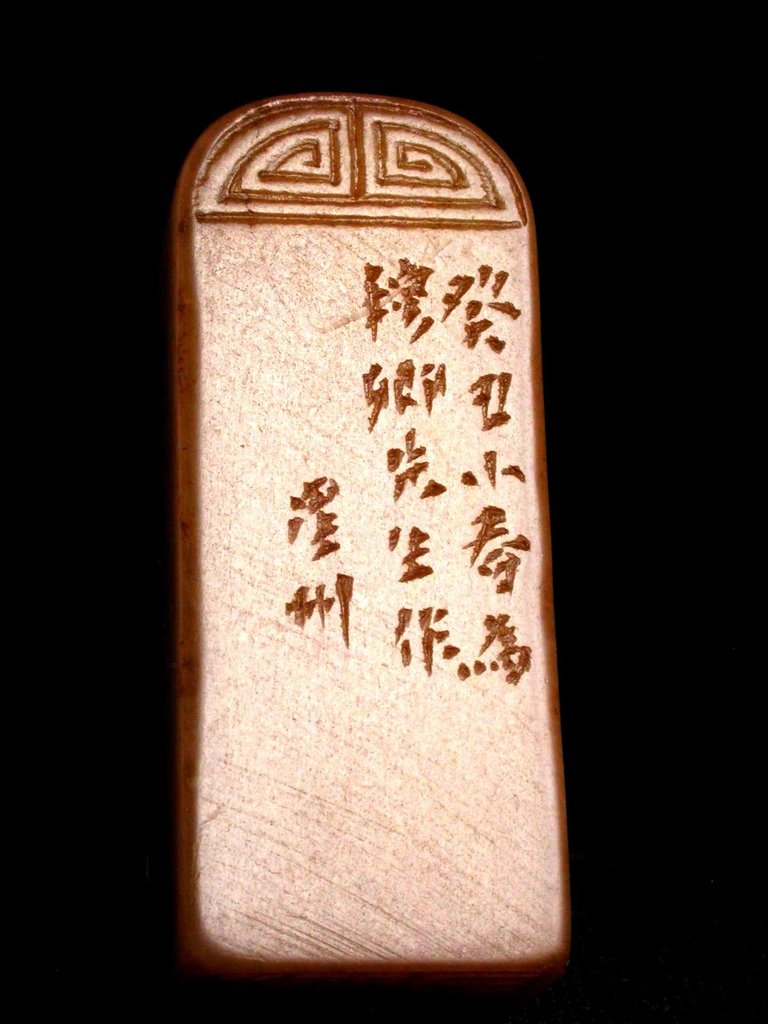 癸丑小春為
穆卿先生作
州